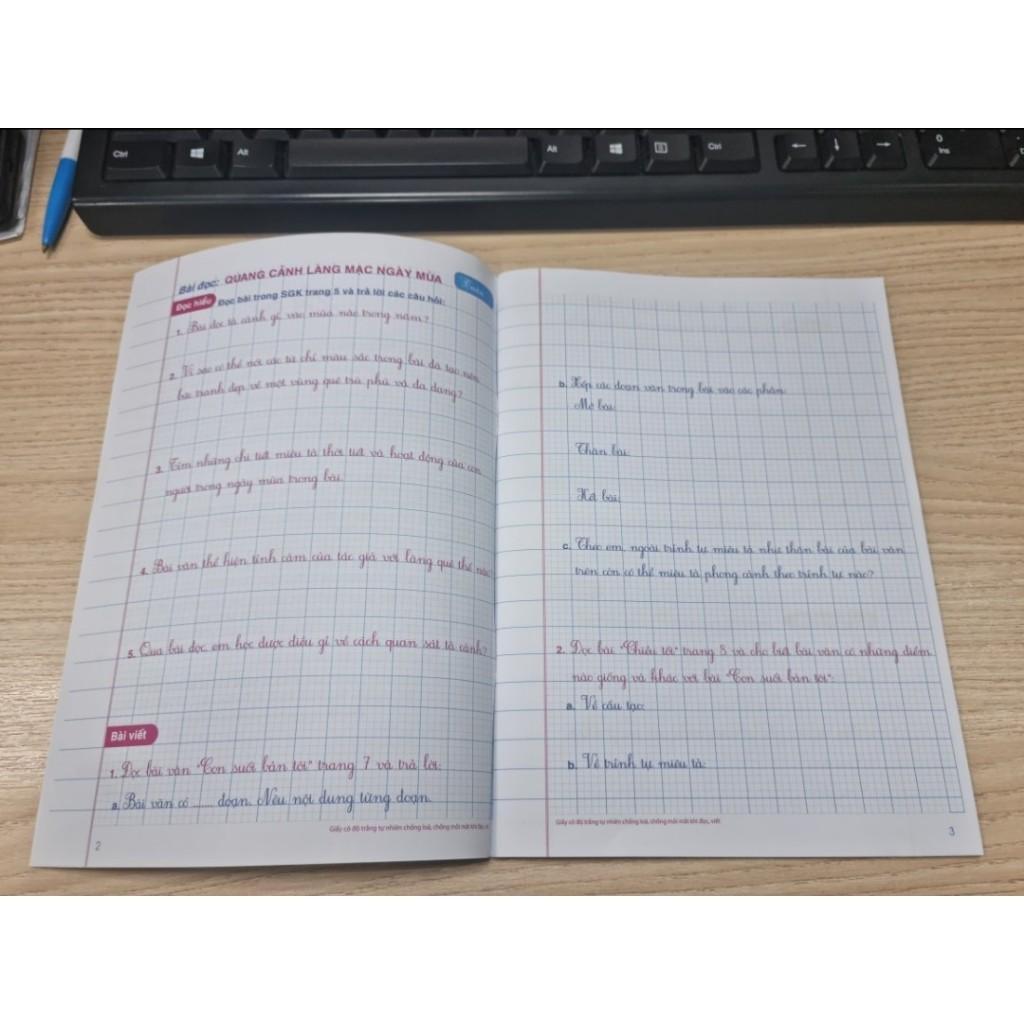 Ctrl
Alt
Alt
Ctrl
0
Ins
Bài đọc: QUANG CẢNH LÀNG MẠC NGÀY MÙA
Tuần
Đọc hiểu Đọc bài trong SGK trang 5 và trả lời các câu hỏi:
1. Bài đọc tả cảnh gì, vào mùa nào trong năm?
2. Vì sao có thể nói các từ chỉ màu sắc trong bài đã tạo nên
bức tranh đẹp về một vùng quê trù phú và đa dạng?
3. Tìm những chi tiết miêu tả thời tiết và hoạt động của con
người trong ngày mùa trong bài.
4. Bài văn thể hiện tình cảm của tác giả với làng quê thế nào
5. Qua bài đọc em học được điều gì về cách quan sát tả cảnh?
Bài viết
1. Đọc bài văn "Con suối bản tôi" trang 7 và trả lời:
a. Bài văn có ...... đoạn. Nêu nội dung từng đoạn.
Giấy có độ trắng tự nhiên chống loá, chống mỏi mắt khi đọc, vi
2
b. Xếp các đoạn văn trong bài vào các phần:
Mở bài:
Thân bài:
Kết bài:
c. Theo em, ngoài trình tự miêu tả như thân bài của bài văn
trên còn có thể miêu tả phong cảnh theo trình tự nào?
2. Đọc bài "Chiều tối" trang 8 và cho biết bài văn có những điểm
nào giống và khác với bài "Con suối bản tôi":
a. Về cấu tạo:
b. Về trình tự miêu tả:
Giấy có độ trắng tự nhiên chống loá, chống mỏi mắt khi đọc, viết
3